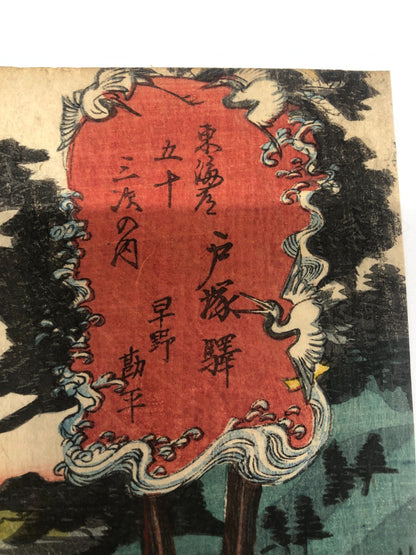 東海道
五十
三次の内
戸塚驛
早野
勘平